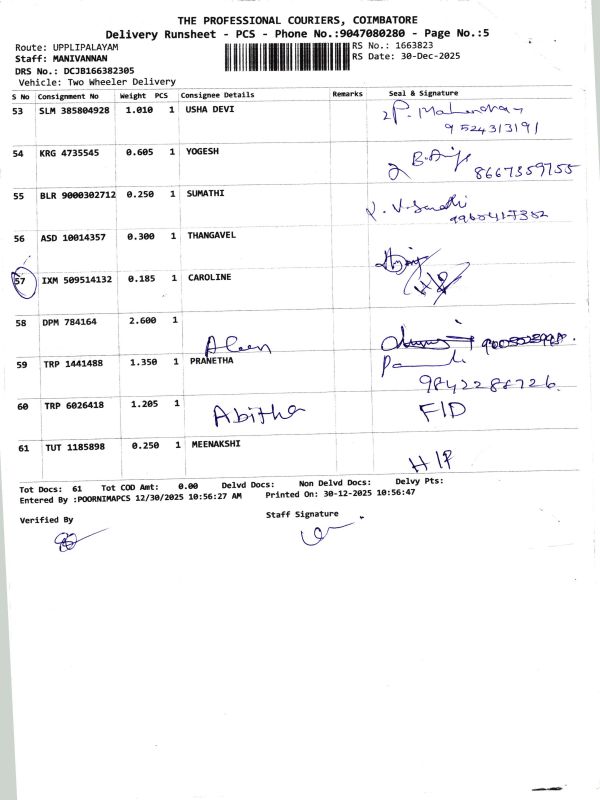 THE PROFESSIONAL COURIERS, COIMBATORE
Delivery Runsheet - PCS - Phone No.:9047080280 - Page No.:5
Route: UPPLIPALAYAM RS No.: 1663823
Staff: MANIVANNAN RS Date: 30-Dec-2025
DRS No.: DCJB166382305
Vehicle: Two Wheeler Delivery
S No Consignment No Weight PCS Consignee Details Remarks Seal & Signature
53 SLM 385804928 1.010 1 USHA DEVI
9524313191
54 KRG 4735545 0.605 1 YOGESH
8667359755
55 BLR 9000302712 0.250 1 SUMATHI
56 ASD 10014357 0.300 1 THANGAVEL
57 IXM 509514132 0.185 1 CAROLINE
H/P
58 DPM 784164 2.600 1
Aleen
59 TRP 1441488 1.350 1 PRANETHA
9842288726.
60 TRP 6026418 1.205 1 Abitha FID
61 TUT 1185898 0.250 1 MEENAKSHI
H/P
Tot Docs: 61 Tot COD Amt: 0.00 Delvd Docs: Non Delvd Docs: Delvy Pts:
Entered By :POORNIMAPCS 12/30/2025 10:56:27 AM Printed On: 30-12-2025 10:56:47
Verified By Staff Signature